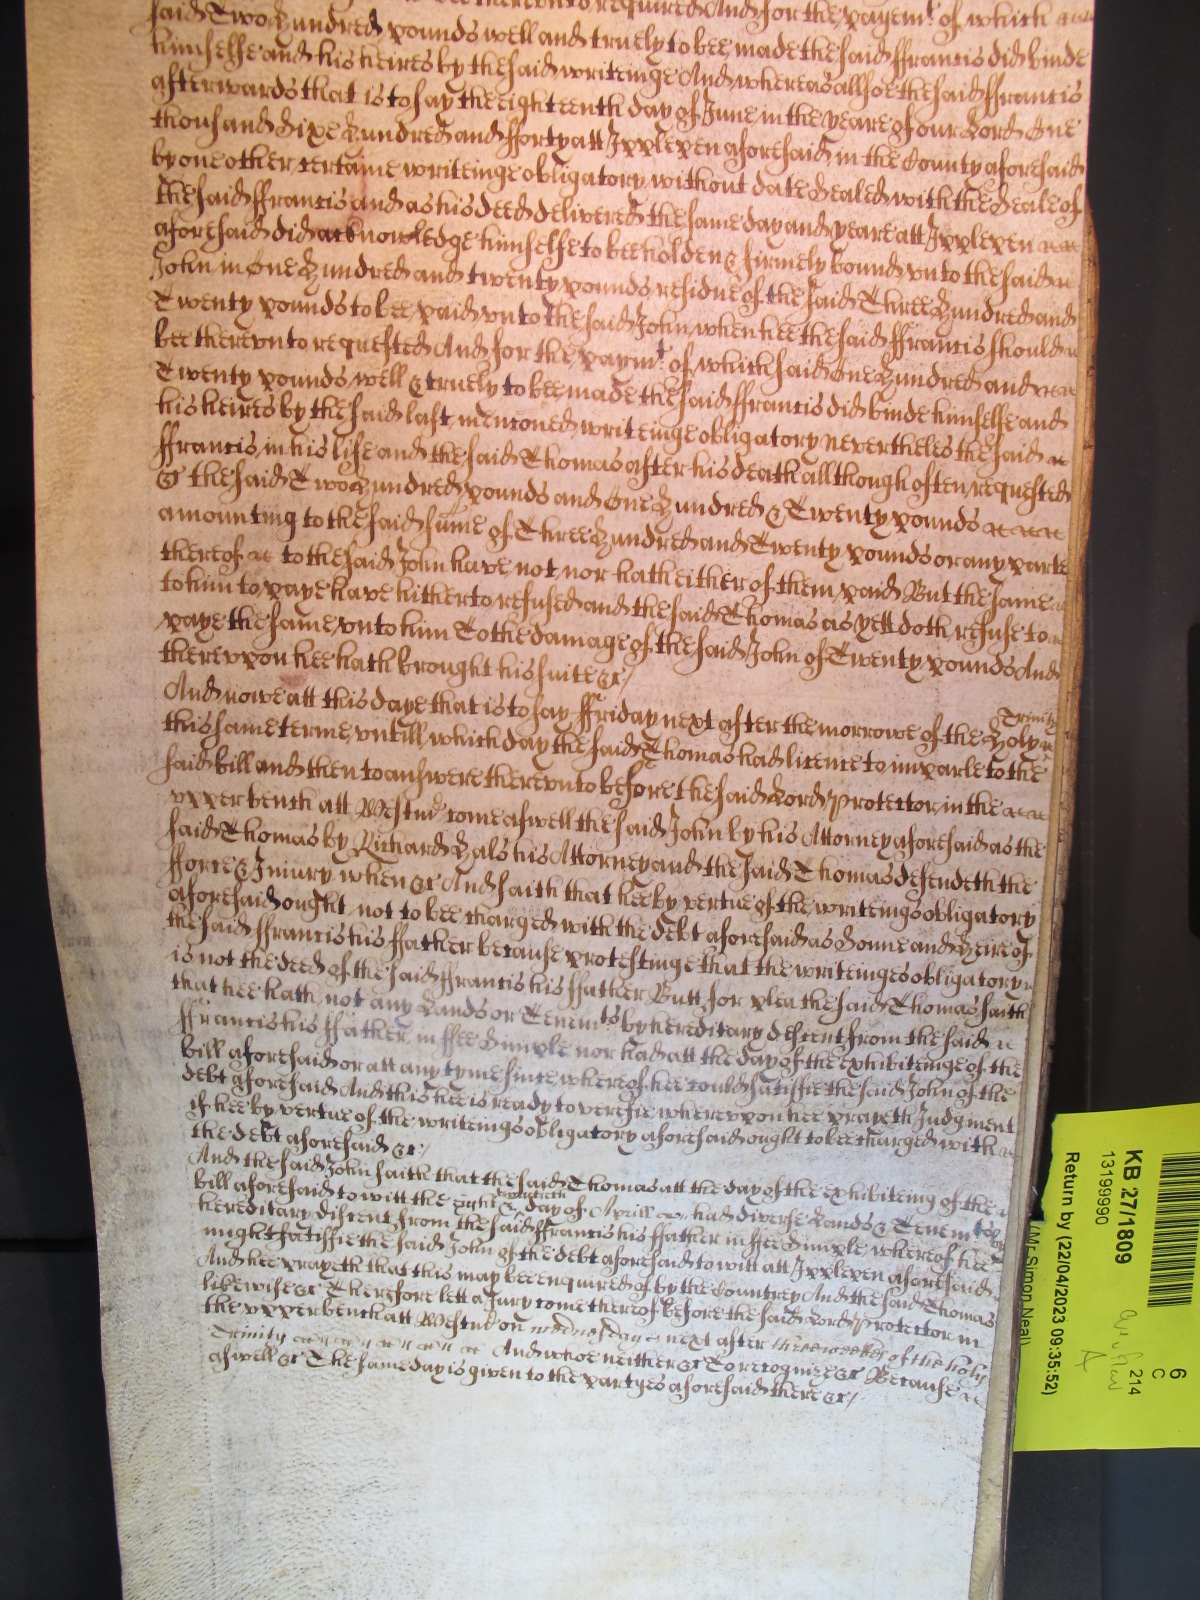 bee therevnto required And for the paym:t of which
said Two Hundred pounds well and truely to bee made the said ffrancis did binde
himselfe and his heires by the said writeinge And whereas allsoe the said ffrancis
afterwards that is to say the eighteenth day of June in the yeare of our Lord One
thousand Sixe Hundred and fforty att Ipplepen aforesaid in the County aforesaid
by one other certaine writeinge obligatory without date Sealed with the Seale of
the said ffrancis and as his deed delivered the same day and yeare att Ipplepen
aforesaid did acknowledge himselfe to bee holden & firmely bound vnto the said
John in One Hundred and twenty pounds residue of the said Three Hundred and
Twenty pounds to bee paid vnto the said John when hee the said ffrancis should
bee therevnto requested And for the paym:t of which said One Hundred and
Twenty pounds well & truely to bee made the said ffrancis did binde himselfe and
his heires by the said last menconed writeinge obligatory nevertheles the said
ffrancis in his life and the said Thomas after his death allthough often requested
&c the said Two Hundred pounds and One Hundred & Twenty pounds
amounting to the said sume of Three Hundred and Twenty pounds or any parte
thereof to the said John have not nor hath either of them paid But the same
to him to paye have hitherto refused and the said Thomas as yett doth refuse to
paye the same vnto him To the damage of the said John of Twenty pounds And
therevpon hee hath brought his suite &c/
And nowe att this daye that is to say ffriday next after the morrowe of the Holy Trinity
this same terme vntill which day the said Thomas had licence to imparle to the
said bill and then to answere therevnto before the said Lord Protector in the
vpper bench att Westm:r come aswell the said John by his Attorney aforesaid as the
said Thomas by Richard Hals his Attorney and the said Thomas defendeth the
fforce & Iniury when &c And saith that hee by vertue of the writeings obligatory
aforesaid ought not to bee charged with the debt aforesaid as Sonne and Heire of
the said ffrancis his ffather because protestinge that the writeinges obligatory
is not the deed of the said ffrancis his ffather Butt for plea the said Thomas saith
that hee hath not any Lands or Tenem:ts by hereditary descent from the said
ffrancis his ffather in ffee Simple nor had att the day of the exhibiteinge of the
bill aforesaid or att any tyme since whereof hee could satisfie the said John of the
debt aforesaid And this hee is ready to verefie wherevpon hee prayeth Judgment
if hee by vertue of the writeings obligatory aforesaid ought to bee charged with
the debt aforesaid &c/
And the said John saith that the said Thomas att the day of the exhibiteing of the
bill aforesaid to witt the twentieth day of Aprill had diverse Lands & Tenem:ts by
hereditary discent from the said ffrancis his ffather in ffee Simple whereof hee
might satisfie the said John of the debt aforesaid to witt att Ipplepen aforesaid
And hee prayeth that this may bee enquired of by the Countrey And the said Thomas
likewise &c Therefore lett a Jury come thereof before the said Lord Protector in
the vpper bench att Westm:r on wednesday next after three weekes of the holy
Trinity And whoe neither &c To recognize &c Because
aswell &c The same day is given to the partyes aforesaid there &c/
KB 27/1809
1319990
Return by (22/04/2023 09:35:52)
(Mr Simon Neal)
6
C
214
A